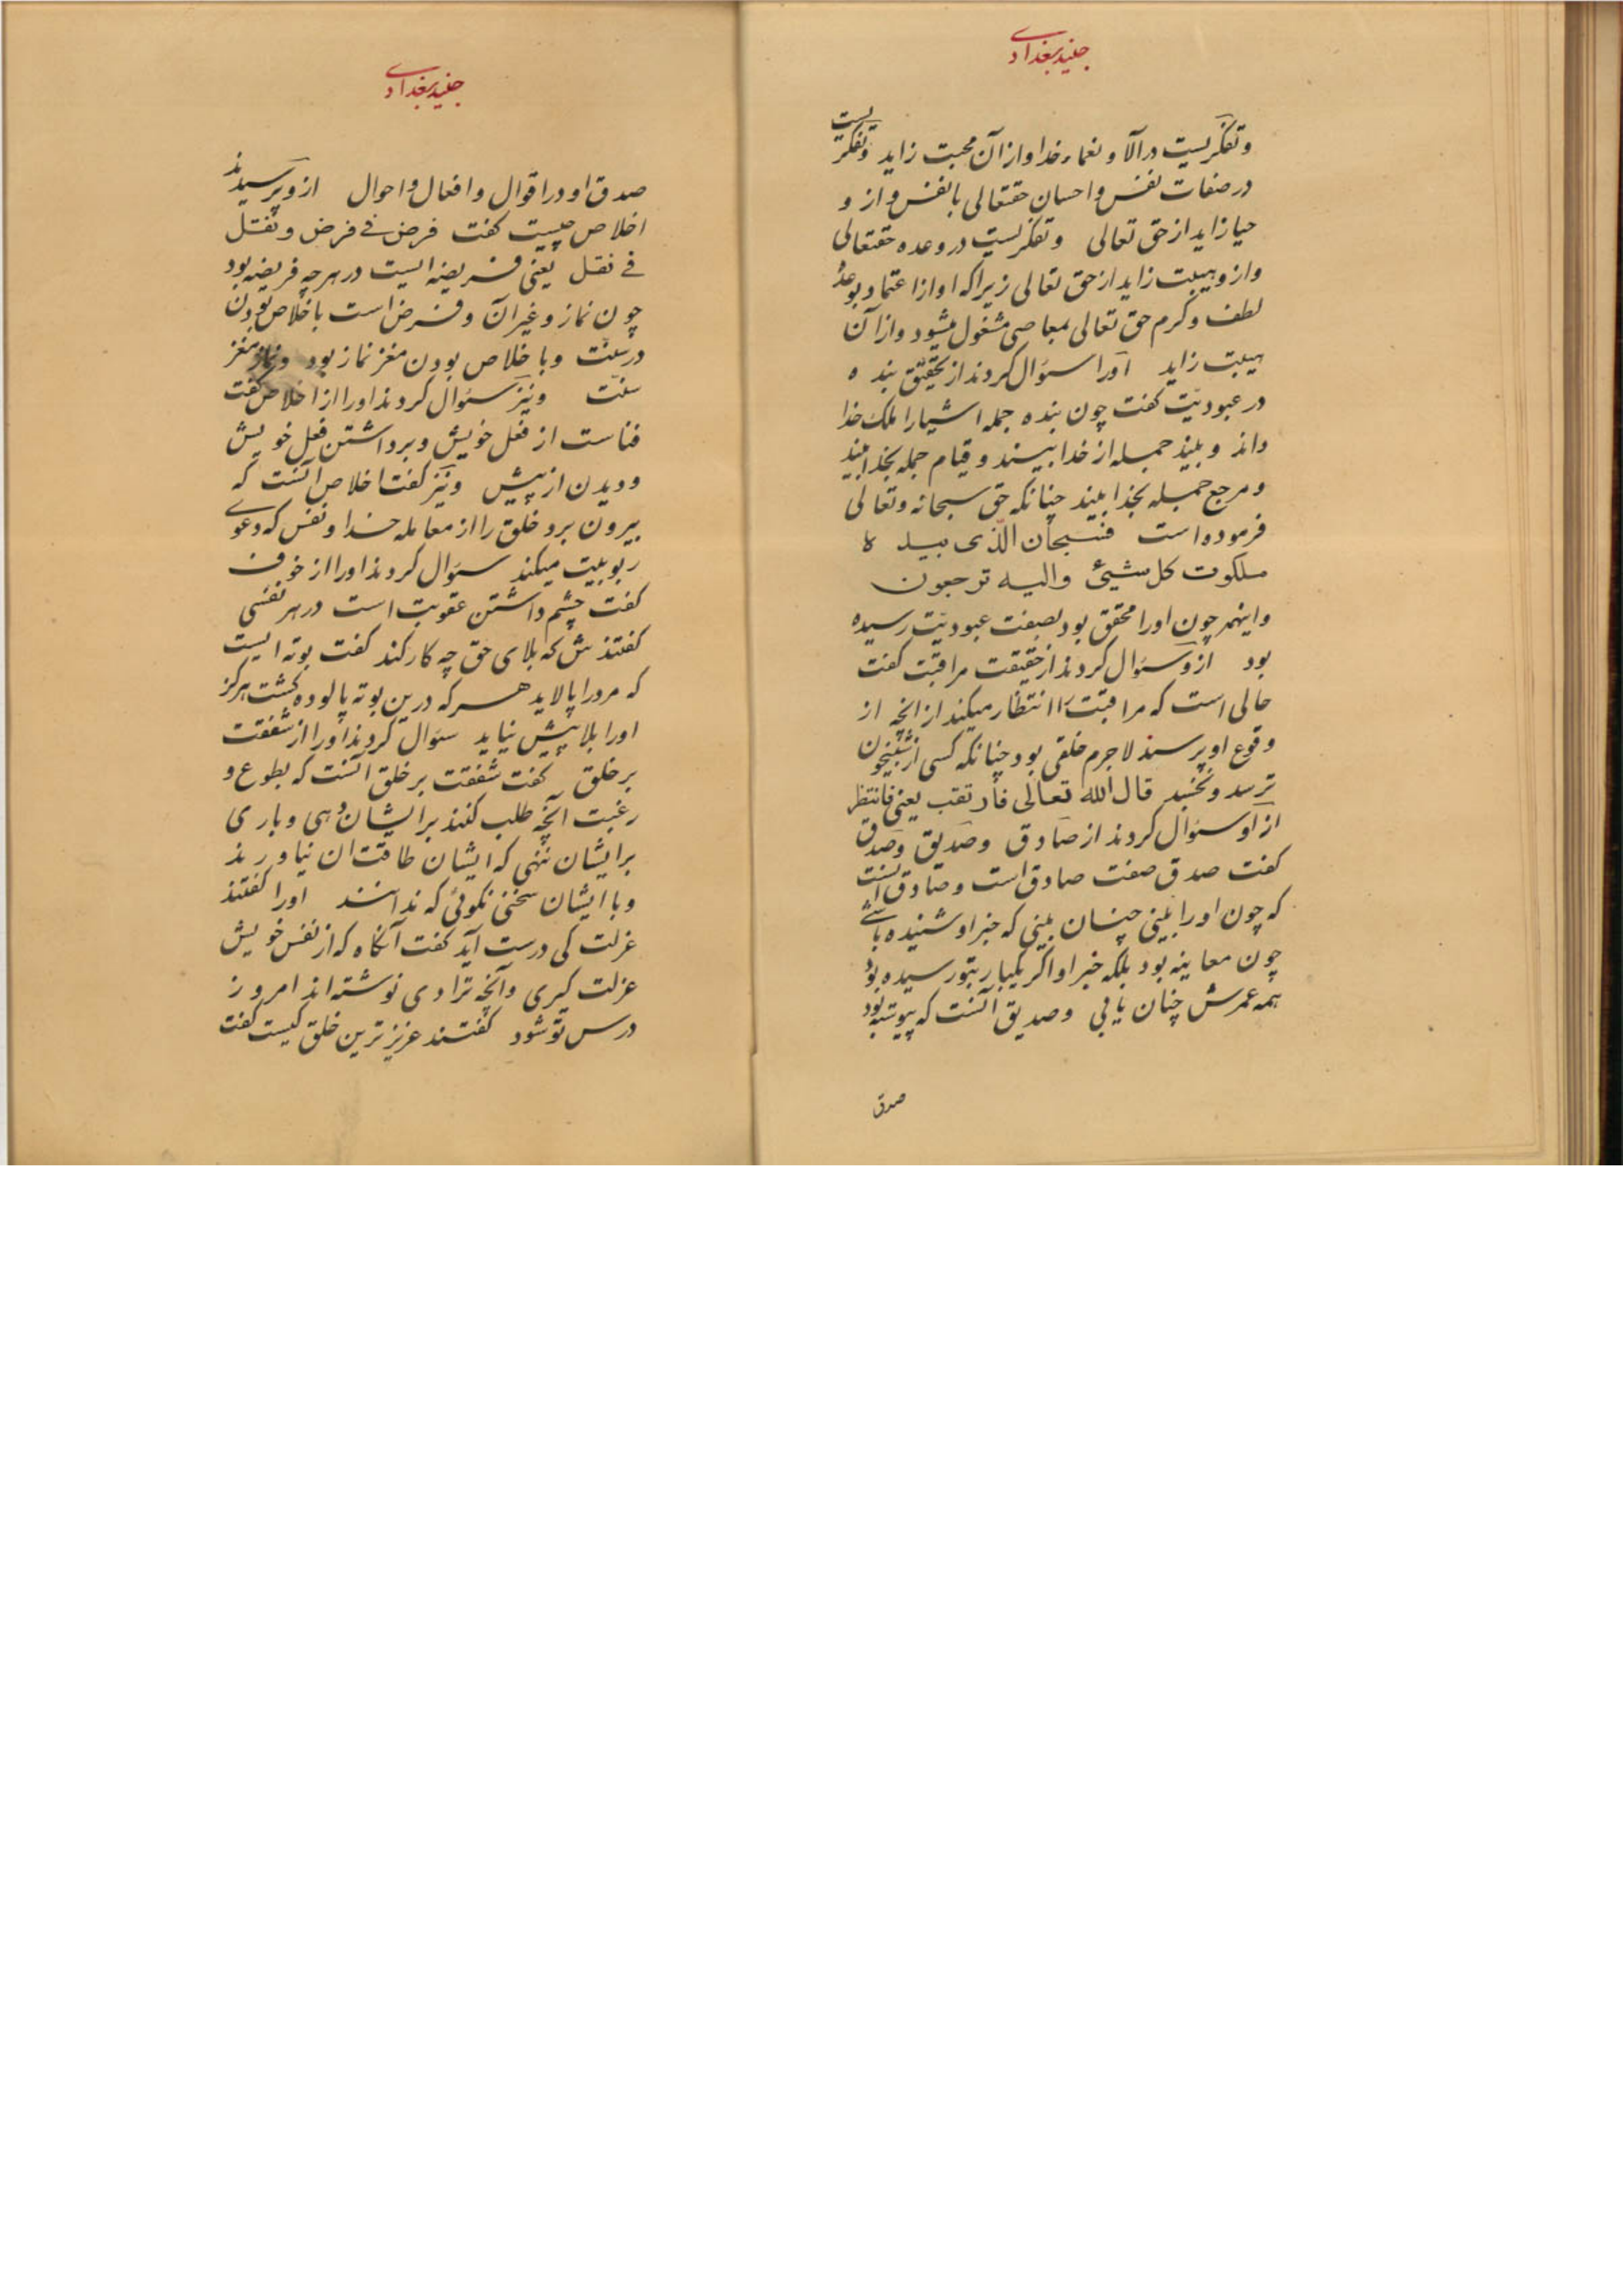 جنید بغدادی
وتفکریست در آلا و نعماء خدا و ازان محبت زاید وتفکریست
در صفات نفس و احسان حقتعالی با نفس و از و
حیا زاید از حق تعالی وتفکریست در وعده حقتعالی
و ازو هیبت زاید از حق تعالی زیرا که او از اعتماد بوعدهٔ
لطف و کرم حق تعالی بمعاصی مشغول میشود و ازان
هیبت زاید اورا سئوال کردند از تحقیق بنده
در عبودیّت کفت چون بنده جمله اشیا را ملک خدا
داند و بیند جمله از خدا بیند و قیام جمله بخدا بیند
و مرجع جمله بخدا بیند چنانکه حق سبحانه وتعالی
فرموده است فسبحان الّذی بیده
ملکوت کل شیئ والیه ترجعون
و اینهمه چون اورا محقق بود بصفت عبودیّت رسیده
بود ازو سئوال کردند از حقیقت مراقبت کفت
حالی است که مراقبت را انتظار میکند از انچه از
وقوع او پرسند لاجرم خلقی بود چنانکه کسی از شبیخون
ترسد ونخسبد قال الله تعالی فارتقب یعنی فانتظر
از او سئوال کردند از صادق و صدیق و صدق
کفت صدق صفت صادق است و صادق آنست
که چون اورا بینی چنان بینی که خبر او شنیده باشی
چون معاینه بود بلکه خبر او اکر یکبار بتو رسیده بود
همه عمرش چنان یابی و صدیق آنست که پیوسته بود
صدق
جنید بغدادی
صدق او در اقوال و افعال و احوال از وپرسیدند
اخلاص چیست کفت فرض فی فرض و نفل
فی نفل یعنی فریضه ایست در هرچه فریضه بود
چون نماز و غیر آن و فرض است باخلاص بودن
در سنّت و با خلاص بودن مغز نماز بود و نماز مغز
سنّت و نیز سئوال کردند اورا از اخلاص کفت
فناست از فعل خویش و برداشتن فعل خویش
و دیدن از پیش و نیز کفت اخلاص آنست که
بیرون برد خلق را از معامله خدا و نفس که دعوی
ربوبیت میکند سئوال کردند اورا از خوف
کفت چشم داشتن عقوبت است در هر نفسی
کفتندش که بلای حق چه کار کند کفت بوته ایست
که مرد را پالاید هرکه درین بوته پالوده کشت هرکز
اورا بلا پیش نیاید سئوال کردند اورا از شفقت
بر خلق کفت شفقت بر خلق آنست که بطوع و
رغبت آنچه طلب کنند بر ایشان دهی و باری
بر ایشان ننهی که ایشان طاقت ان نیاورند
و با ایشان سخنی نکوئی که ندانند اورا کفتند
عزلت کی درست آید کفت آنکاه که از نفس خویش
عزلت کیری و آنچه ترا دی نوشته اند امروز
درس تو شود کفتند عزیزترین خلق کیست کفت